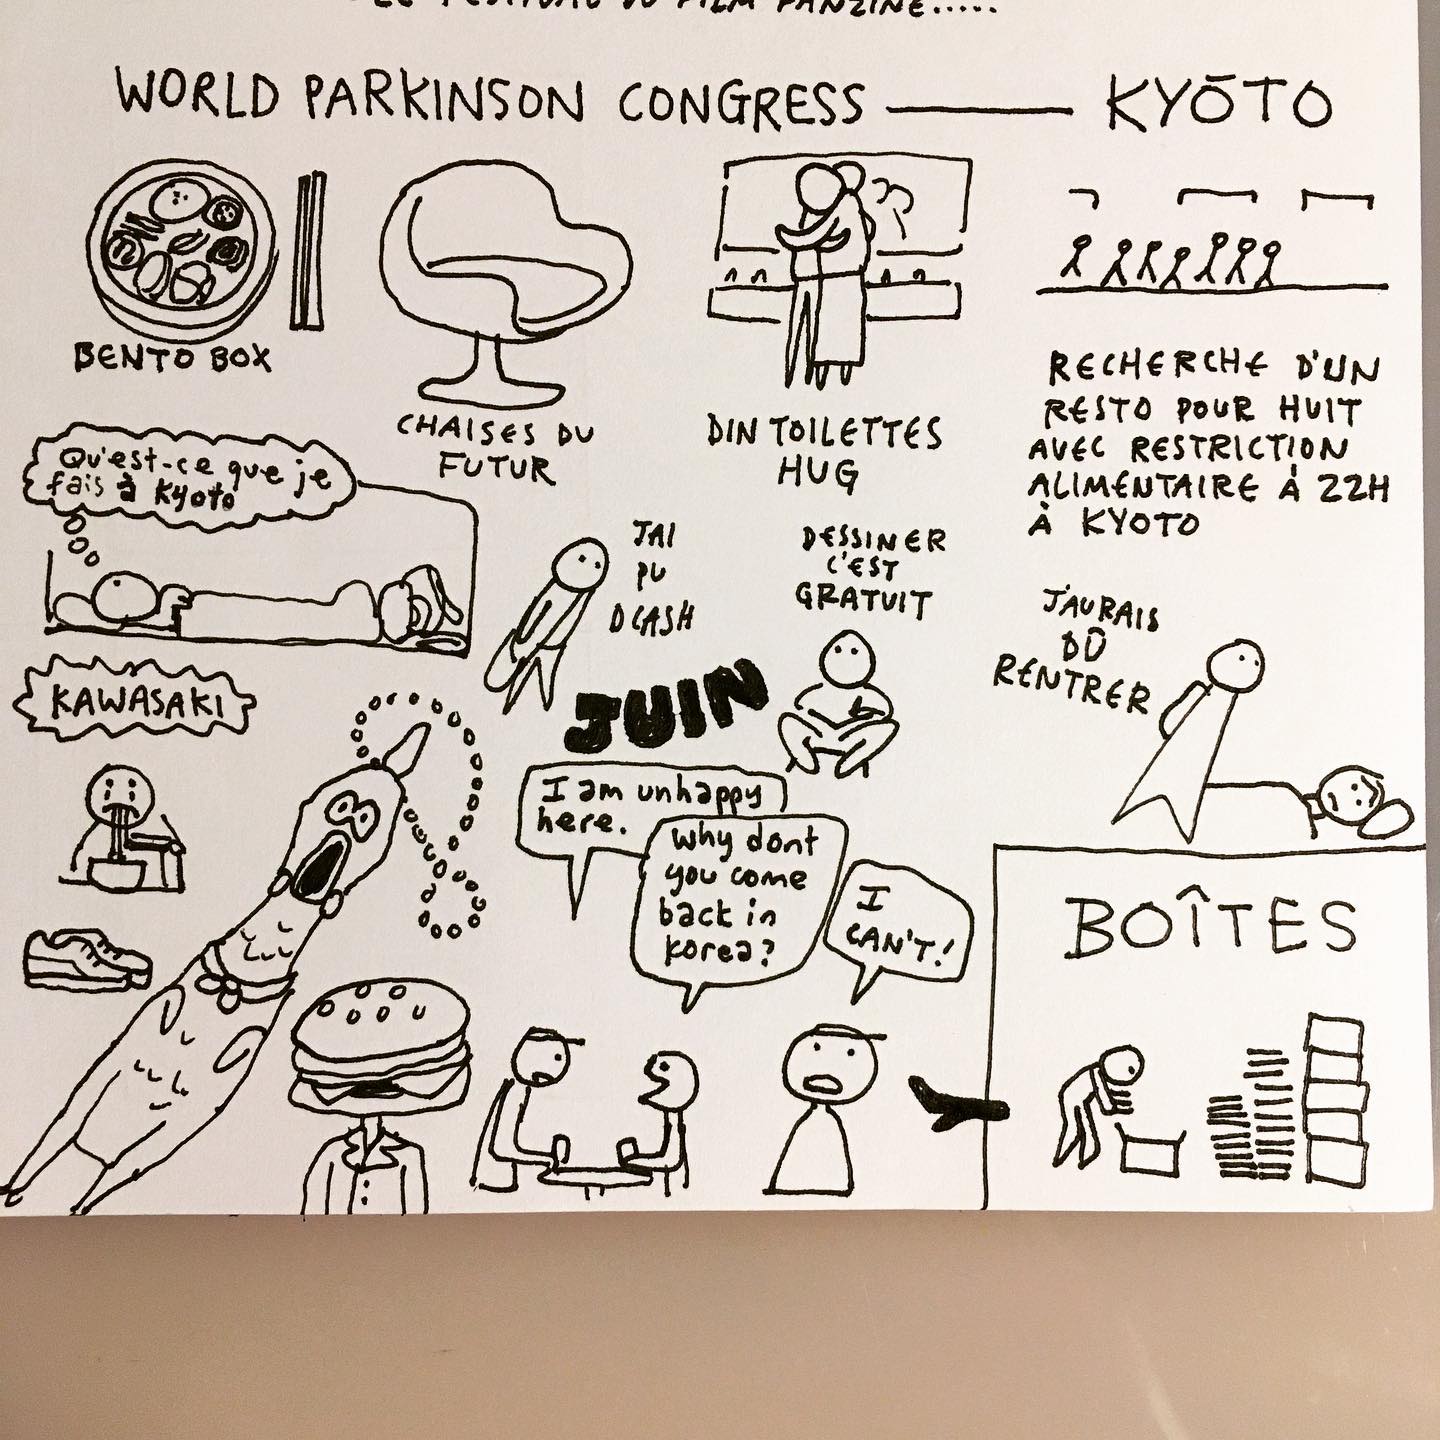 LE FESTIVAL DU FILM FANZINE.....
WORLD PARKINSON CONGRESS — KYŌTO
BENTO BOX
CHAISES DU
FUTUR
DIN TOILETTES
HUG
RECHERCHE D'UN
RESTO POUR HUIT
AVEC RESTRICTION
ALIMENTAIRE À 22H
À KYOTO
Qu'est-ce que je
fais à Kyoto
JAI
PU
DCASH
DESSINER
C'EST
GRATUIT
J'AURAIS
DÛ
RENTRER
KAWASAKI
JUIN
I am unhappy
here.
Why dont
you come
back in
Korea?
I
CAN'T!
BOÎTES